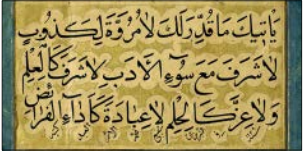 يأتيك ما قدر لك لا مروة لكذوب
لا شرف مع سوء الأدب لا شرف كالعلم
ولا عز كالحلم لا عبادة كأداء الفرائض